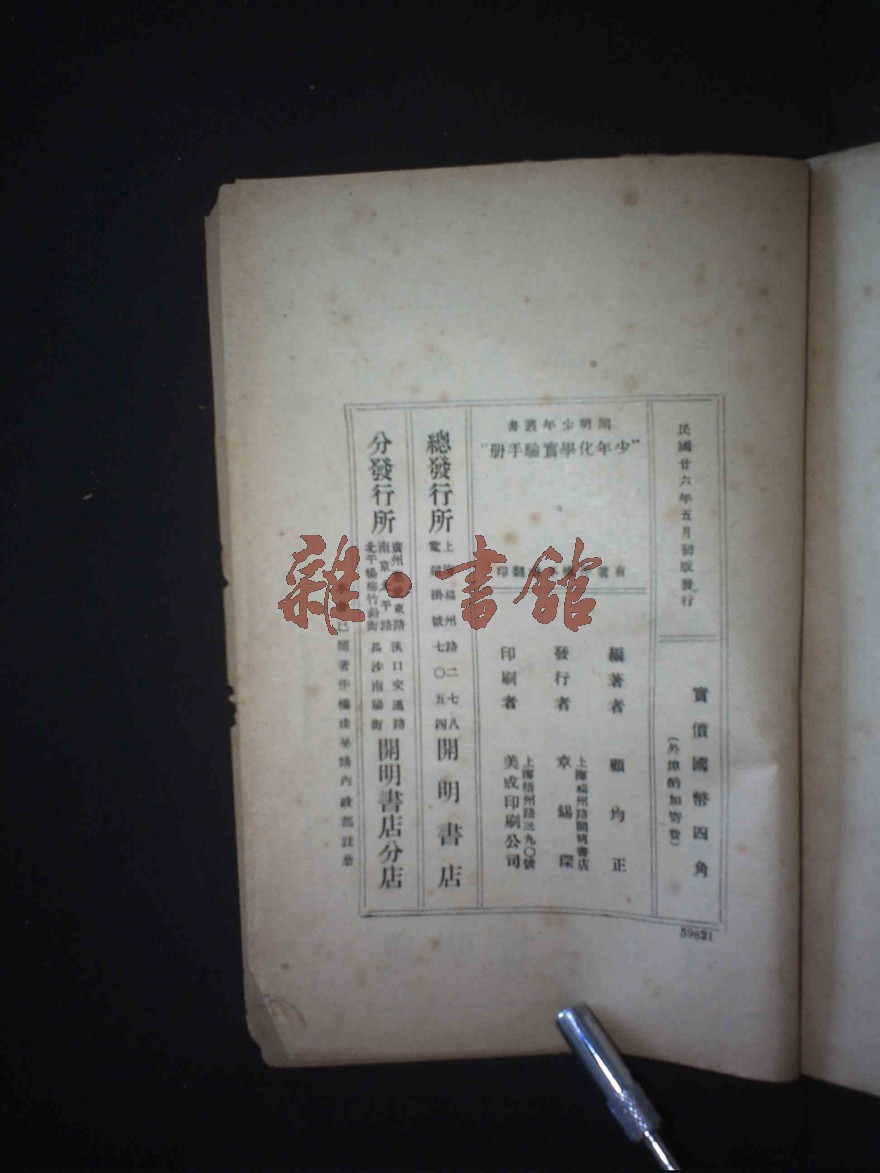 民國廿六年五月初版發行
實價國幣四角
(外埠酌加寄費)
開明少年叢書
“少年化學實驗手册”
有著作權 翻印
編著者 顧均正
發行者 章錫琛
上海福州路開明書店
印刷者 美成印刷公司
上海梧州路三九〇號
總發行所 開明書店
上海福州路二七八
電報掛號七〇五四
分發行所 開明書店分店
廣州 東路 漢口交通路
南京太平路 長沙南陽街
北平楊梅竹斜街
已 著作權 內政部註册
59821
雜·書館